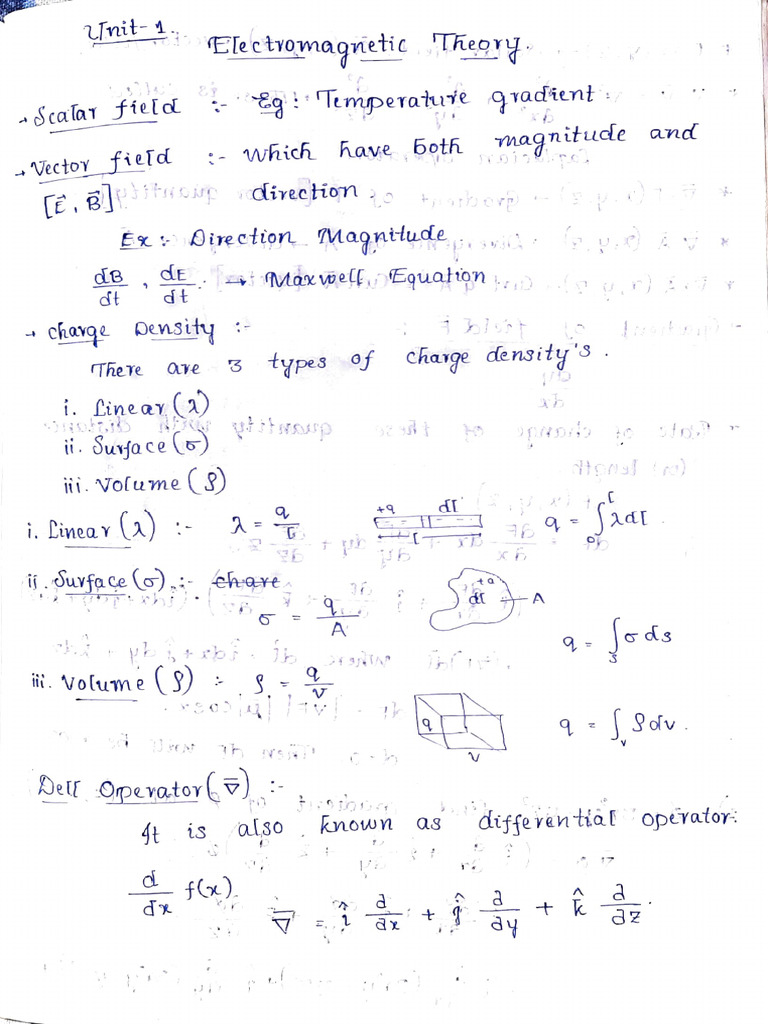 Unit-1.
Electromagnetic Theory.
→ Scalar field :- Eg: Temperature gradient.
→ Vector field :- which have both magnitude and
[Ê, B⃗] direction.
Ex:- Direction Magnitude
dB/dt , dE/dt. → Maxwell Equation
→ charge Density :-
There are 3 types of charge density's.
i. Linear (λ)
ii. Surface (σ)
iii. Volume (ρ)
i. Linear (λ) :- λ = q/l +q dl l q = ∫₀ˡ λdl.
ii. Surface (σ) :- chare
σ = q/A +q dl A q = ∫ₛ σ ds
iii. Volume (ρ) :- ρ = q/v q v q = ∫ᵥ ρdv.
Dell Operator (∇̅) :-
It is also known as differential operator.
d/dx f(x).
∇̅ = î ∂/∂x + ĵ ∂/∂y + k̂ ∂/∂z.